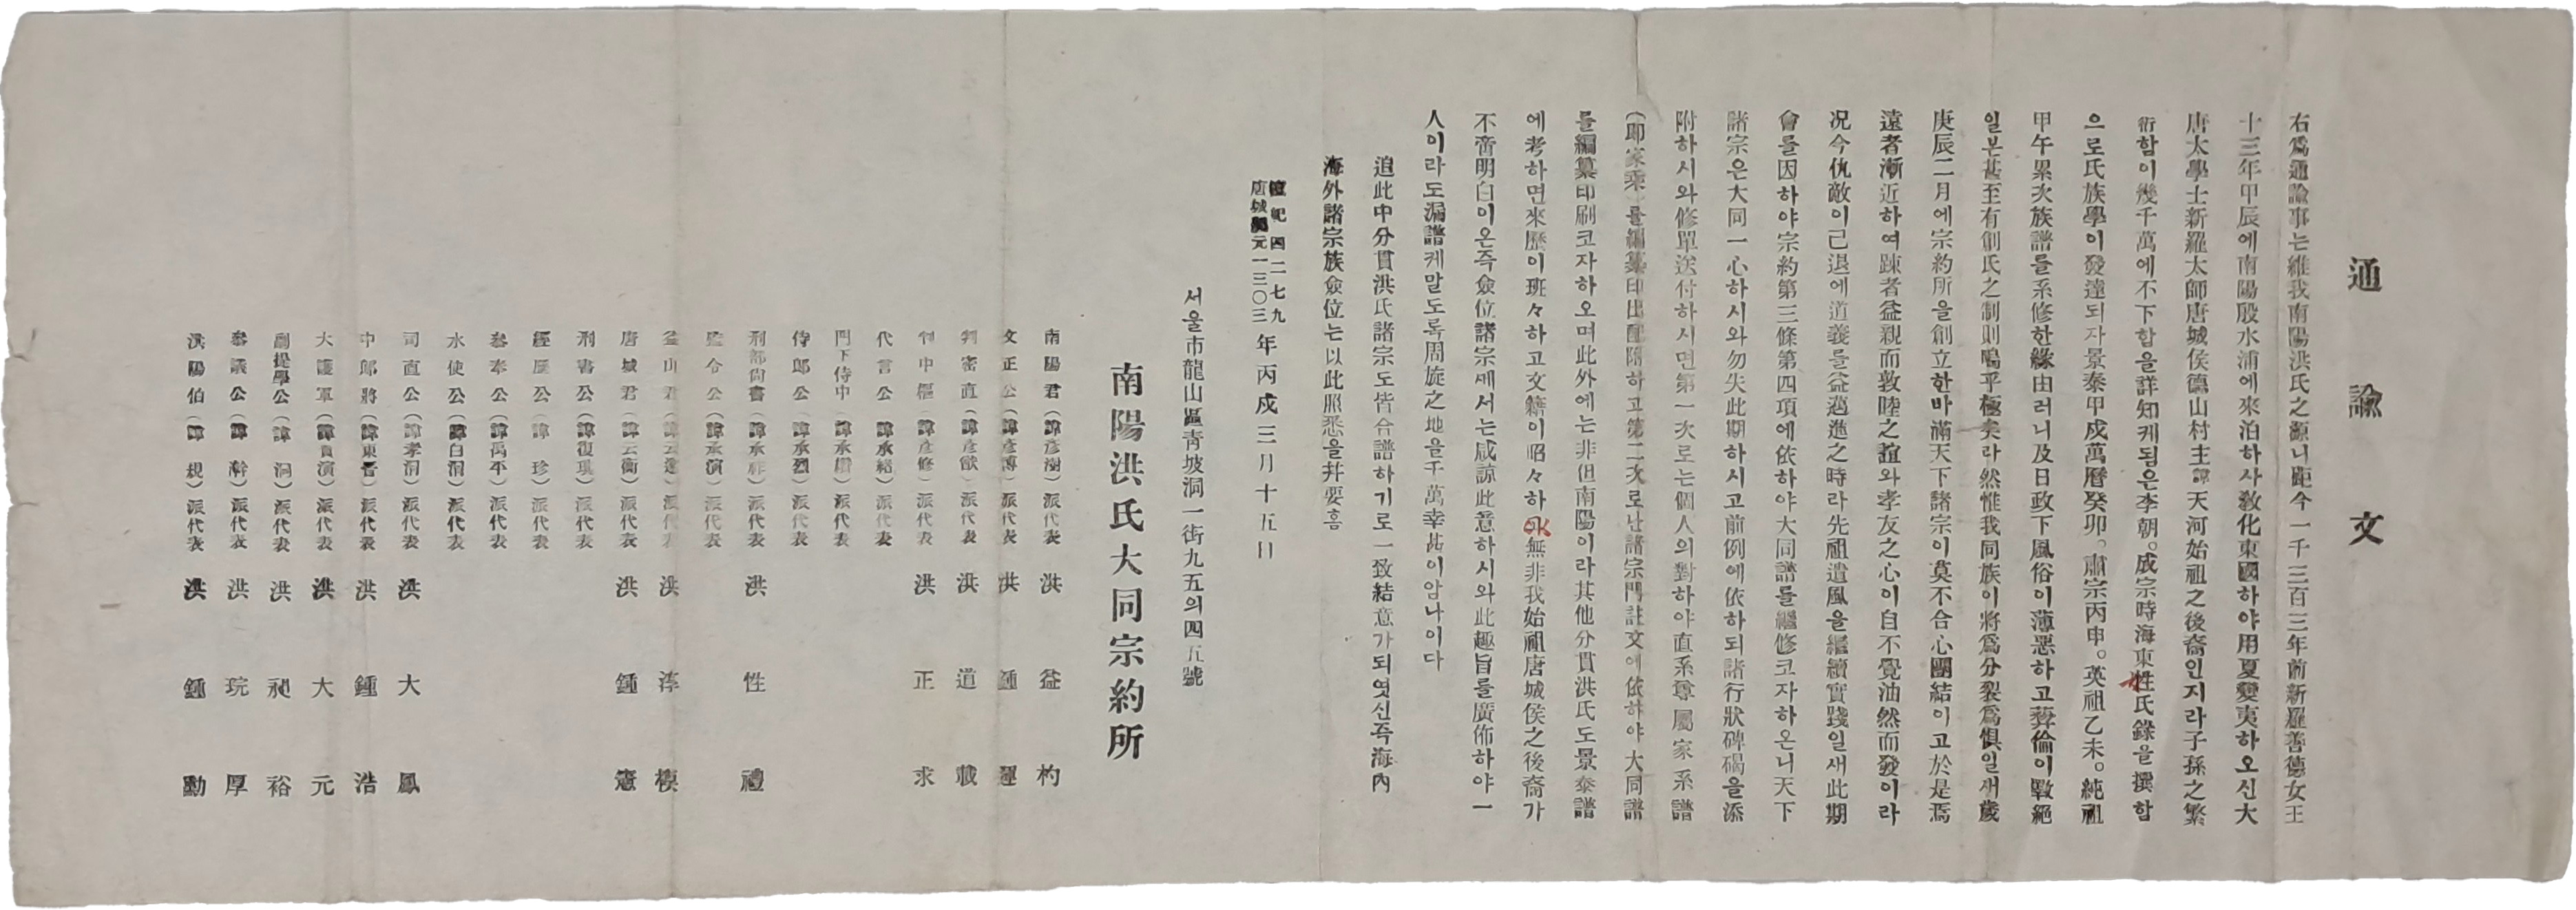 通諭文
右爲通諭事는維我南陽洪氏之源니距今一千三百三年前新羅善德女王
十三年甲辰에南陽殷水浦에來泊하사敎化東國하야用夏變夷하오신大
唐太學士新羅太師唐城侯德山村主諱天河始祖之後裔인지라子孫之繁
衍함이幾千萬에不下함을詳知케됨은李朝。成宗時海東性氏錄을撰함
으로氏族學이發達되자景泰甲戌萬曆癸卯。肅宗丙申。英祖乙未。純祖
甲午累次族譜를系修한緣由러니及日政下風俗이薄惡하고彛倫이斁絕
일본甚至有創氏之制則嗚乎極矣라然惟我同族이將爲分裂爲惧일새歲
庚辰二月에宗約所을創立한바滿天下諸宗이莫不合心團結이고於是焉
遠者漸近하여踈者益親而敦睦之誼와孝友之心이自不覺油然而發이라
况今仇敵이己退에道義를益邁進之時라先祖遺風을繼續實踐일새此期
會를因하야宗約第三條第四項에依하야大同譜를繼修코자하온니天下
諸宗은大同一心하시와勿失此期하시고前例에依하되諸行狀碑碣을添
附하시와修單送付하시면第一次로는個人의對하야直系尊屬家系譜
(即家乘)를編纂印出配附하고第二次로난諸宗門註文에依하야大同譜
를編纂印刷코자하오며此外에는非但南陽이라其他分貫洪氏도景泰譜
에考하면來歷이班々하고文籍이昭々하야無非我始祖唐城侯之後裔가
不啻明白이온즉僉位諸宗께서는咸諒此意하시와此趣旨를廣佈하야一
人이라도漏譜케말도록周旋之地을千萬幸甚이압나이다
追此中分貫洪氏諸宗도皆合譜하기로一致結意가되엿신즉海內
海外諸宗族僉位는以此照悉을幷要홈
檀紀四二七九
唐城紀元一三〇三年丙戍三月十五日
서울市龍山區靑坡洞一街九五의四五號
南陽洪氏大同宗約所
南陽君(諱彦澍)派代表 洪益杓
文正公(諱彦博)派代表 洪鍾運
判密直(諱彦猷)派代表 洪道載
判中樞(諱彦修)派代表 洪正求
代言公(諱承緖)派代表
門下侍中(諱承瓚)派代表
侍郎公(諱承烈)派代表
刑部尙書(諱承祚)派代表 洪性禮
監令公(諱承演)派代表
益山君(諱云遂)派代表 洪淳穆
唐城君(諱云衡)派代表 洪鍾憲
刑書公(諱復璵)派代表
經歷公(諱珍)派代表
參奉公(諱禹平)派代表
水使公(諱白洞)派代表
司直公(諱孝洞)派代表 洪大鳳
中郎將(諱東晋)派代表 洪鍾浩
大護軍(諱實演)派代表 洪大元
副提學公(諱洞)派代表 洪昶裕
參議公(諱幹)派代表 洪琓厚
洪陽伯(諱規)派代表 洪鍾勳